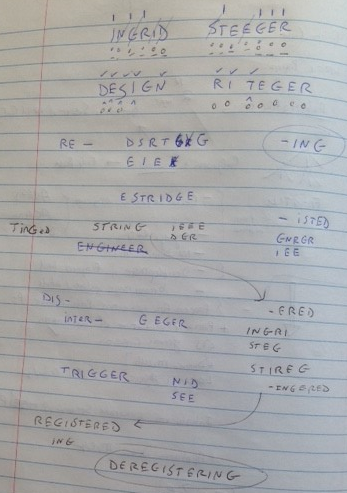 INGRID STEEGER
DESIGN RITEGER
RE - DSRT G - ING
EIE
ESTRIDGE
TINGED STRING IEEE - ISTED
ENGINEER DGR GNRGR
IEE
DIS- -ERED
INTER- GEGER INGRI
STEG
TRIGGER NID STIREG
SEE -INGERED
REGISTERED
ING
DEREGISTERING